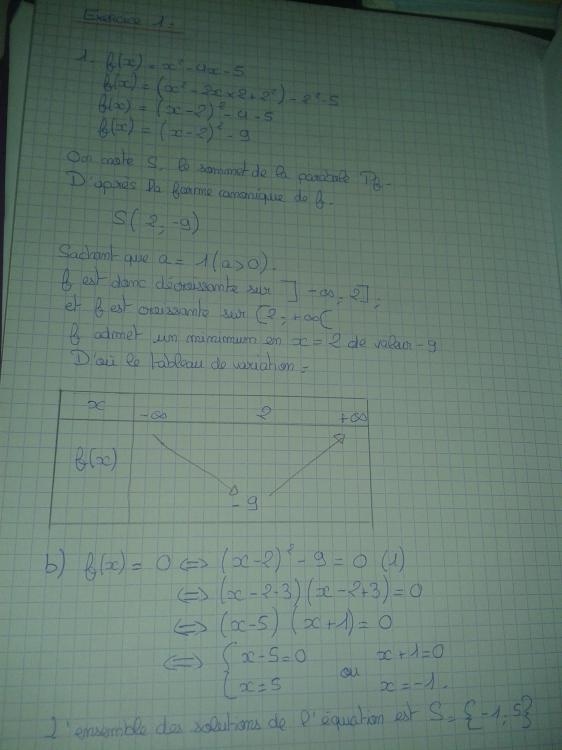 Exercice 1 :
1- f(x) = x² - 4x - 5
f(x) = (x² - 2x × 2 + 2²) - 2² - 5
f(x) = (x - 2)² - 4 - 5
f(x) = (x - 2)² - 9
On note S, le sommet de la parabole Pf.
D'après la forme canonique de f.
S(2; -9)
Sachant que a = 1 (a > 0).
f est donc décroissante sur ]-∞; 2];
et f est croissante sur [2; +∞[
f admet un minimum en x = 2 de valeur -9
D'où le tableau de variation =
x -∞ 2 +∞
f(x)
-9
b) f(x) = 0 ⇔ (x - 2)² - 9 = 0 (1)
⇔ (x - 2 - 3) (x - 2 + 3) = 0
⇔ (x - 5) (x + 1) = 0
⇔ { x - 5 = 0 ou x + 1 = 0
x = 5 x = -1.
L'ensemble des solutions de l'équation est S = {-1; 5}